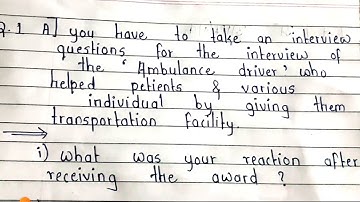 Q.1 A] you have to take an interview
questions for the interview of
the 'Ambulance driver' who
helped petients & various
individual by giving them
transportation facility.
i) what was your reaction after
receiving the award ?